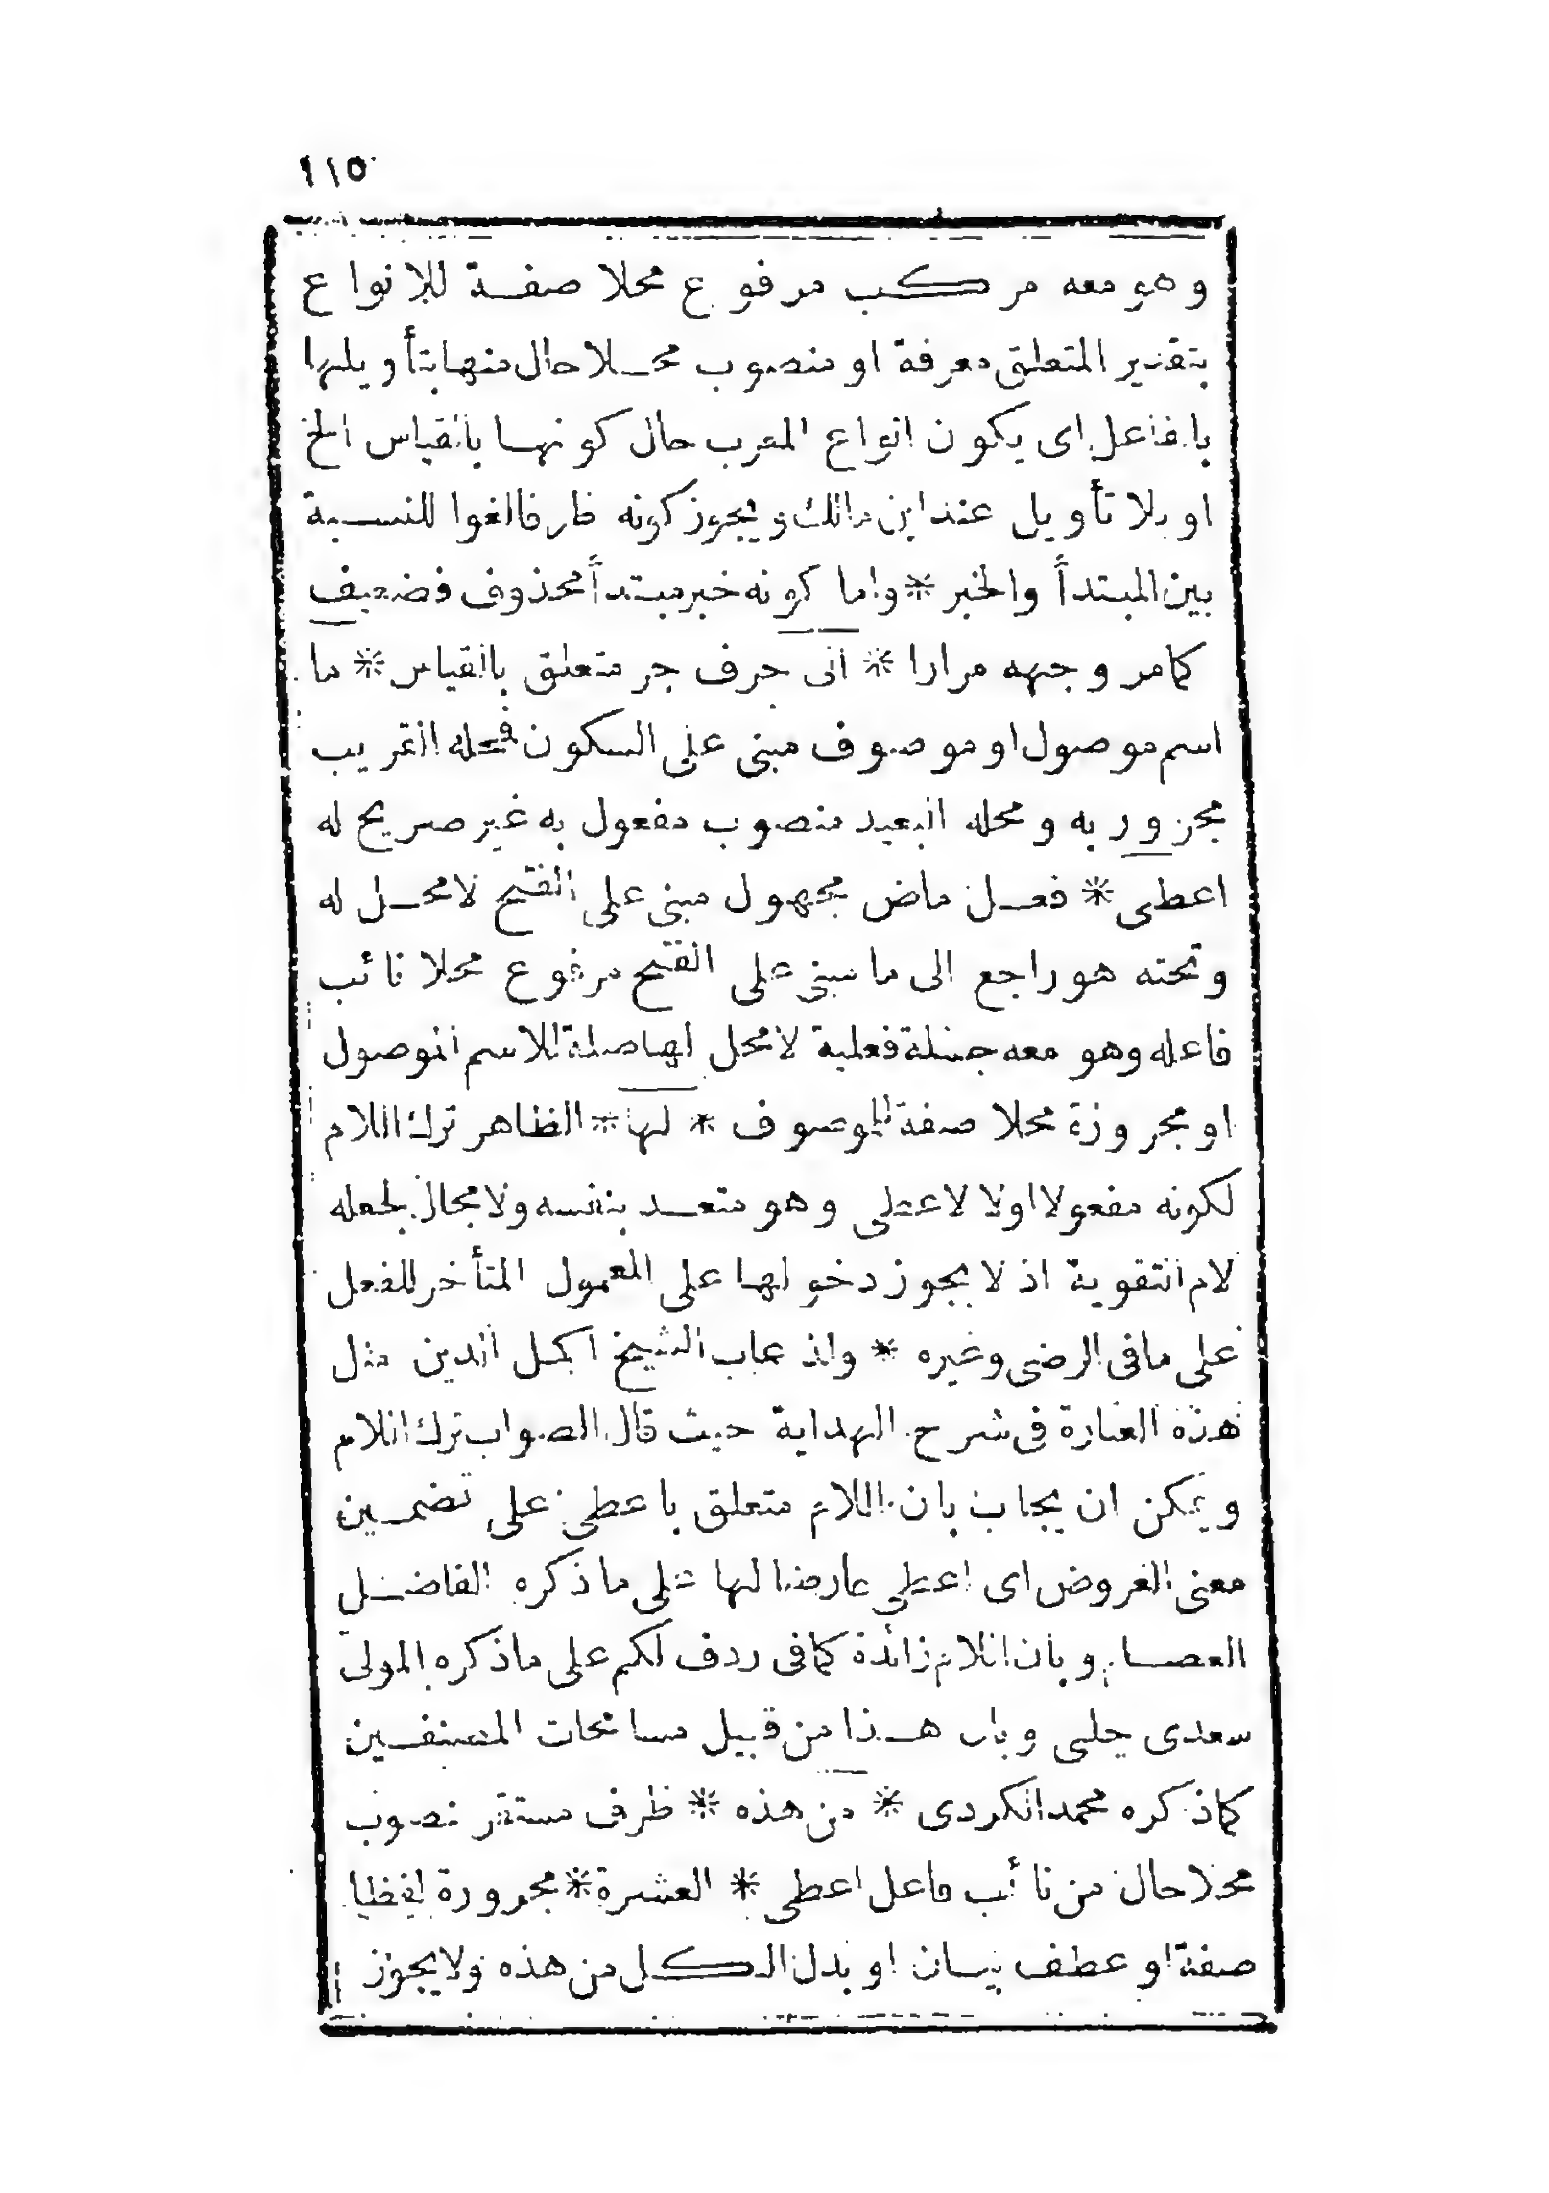 ١١٥
وهو معه مركب مرفوع محلا صفة للانواع
بتقدير المتعلق معرفة او منصوب محلا حال منها بتأويلها
بالفاعل اى يكون انواع المعرب حال كونها بالقياس الخ
او بلا تأويل عند ابن مالك ويجوز كونه ظرفا لغوا للنسبة
بين المبتدأ والخبر * واما كونه خبر مبتدأ محذوف فضعيف
كمامر وجهه مرارا * الى حرف جر متعلق بالقياس * ما
اسم موصول او موصوف مبنى على السكون فمحله القريب
مجرور به ومحله البعيد منصوب مفعول به غير صريح له
اعطى * فعل ماض مجهول مبنى على الفتح لامحل له
وتحته هو راجع الى ما مبنى على الفتح مرفوع محلا نائب
فاعله وهو معه جملة فعلية لامحل لها صلة للاسم الموصول
او مجرورة محلا صفة للموصوف * لها * الظاهر ترك اللام
لكونه مفعولا اولا لاعطى وهو متعد بنفسه ولا مجال لجعله
لام التقوية اذ لا يجوز دخولها على المعمول المتأخر للفعل
على مافى الرضى وغيره * ولذ عاب الشيخ اكمل الدين مثل
هذه العبارة فى شرح الهداية حيث قال الصواب ترك اللام
ويمكن ان يجاب بان اللام متعلق باعطى على تضمين
معنى العروض اى اعطى عارضا لها على ما ذكره الفاضل
العصام وبان اللام زائدة كمافى ردف لكم على ماذكره المولى
سعدى چلبى وبان هذا من قبيل مسامحات المصنفين
كماذكره محمد الكردى * من هذه * ظرف مستقر منصوب
محلا حال من نائب فاعل اعطى * العشرة * مجرورة لفظا
صفة او عطف بيان او بدل الكل من هذه ولا يجوز